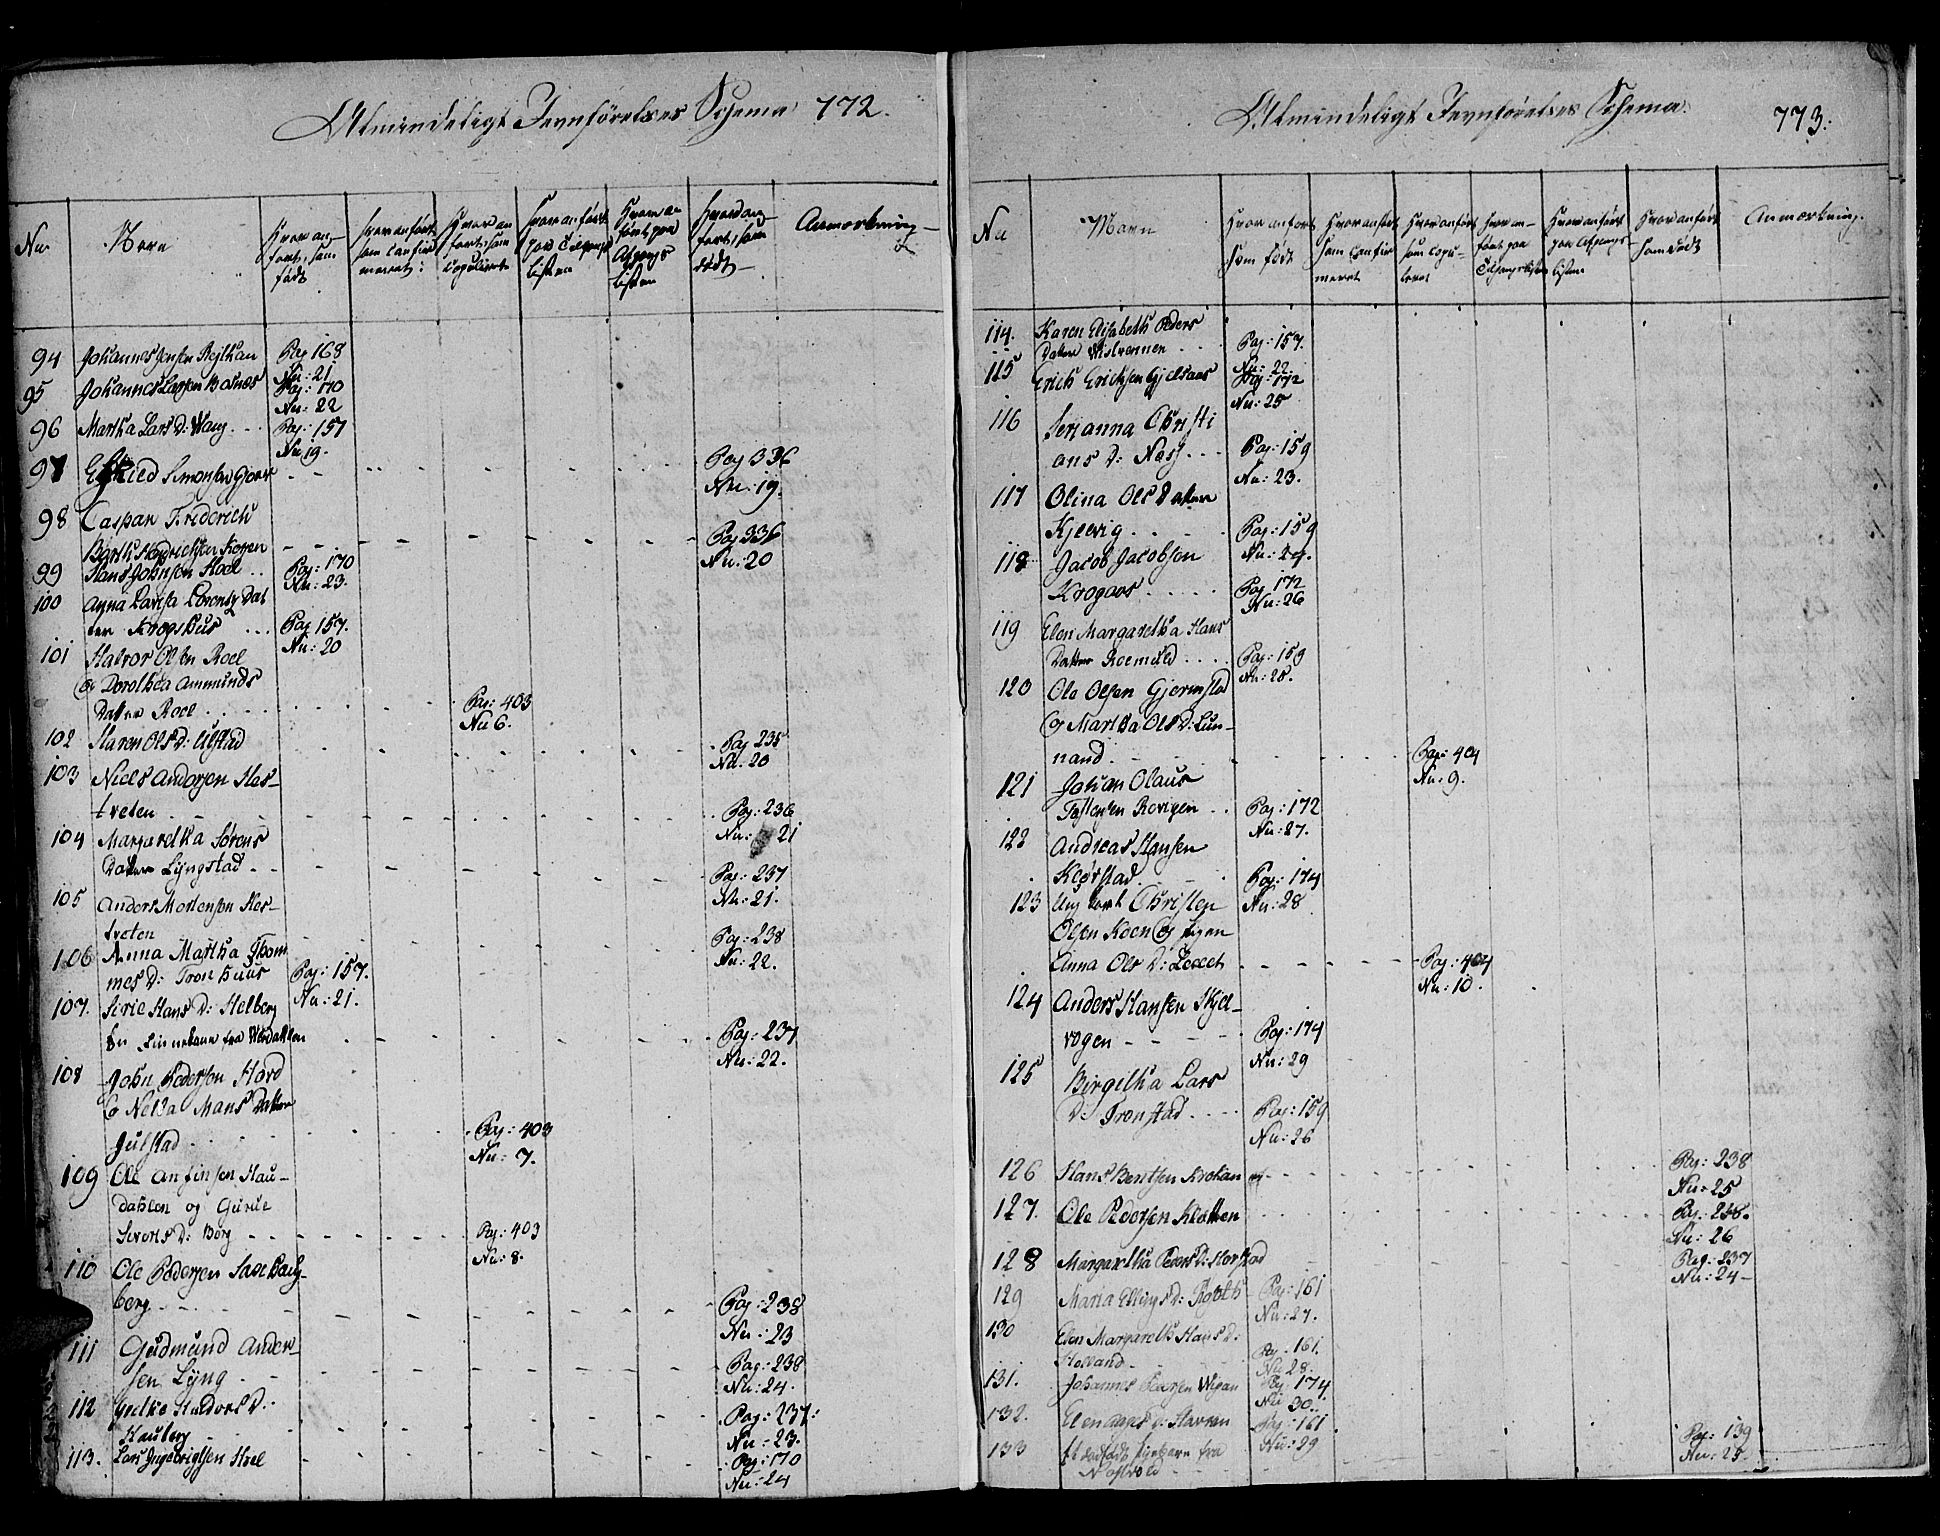 Almindeligt Jevnførelses Schema 772.
No. Navn Hvor anført som født Hvor anført som confirmeret: Hvor anført som copuleret Hvor anført paa Tilgangs listen Hvor anført paa Afgangs listen Hvor anført som død Anmærkning
94 Johannes Jensen Pag 168
Nu: 21
95 Johannes Larsen Pag: 170
Nu: 22
96 Martha Lars D: Wang Pag: 157
Nu 19.
97 Simonsen Pag 336
Nu: 19.
98 Caspar Friderich
Pag 336
Nu: 20
99 Hans Johnsen Roel Pag: 170
Nu: 23.
100 Anna Lovisa Lorentz Dat
ter Krogshus Pag 157.
Nu: 20
101 Halvor Olsen Roel
og Dorothea Ammunds
Datter Roel Pag: 403
Nu 6.
102 Karen Ols D: Ulstad Pag 235
Nu. 20
103 Niels Andersen Hes-
tveten Pag: 236
Nu: 21
104 Margaretha Sørens
Datter Lyngstad Pag: 237
Nu: 21.
105 Anders Mortensen Hes-
tveten Pag: 238
Nu: 22.
106 Anna Martha Thom
mes D: Tronshuus Pag: 157.
Nu: 21.
107. Sirie Hans D: Helberg
fra Værdahlen Pag: 237
Nu: 22.
108 John Pedersen Hard
og Mans Datter
Julstad Pag: 403
Nu: 7.
109 Ole Anfinsen Hau-
dahlen og Gurue
Siverts D: Borg Pag: 403
Nu: 8.
110 Ole Pedersen
berg Pag: 238
Nu: 23
111 Gudmund Ander-
sen Lyng Pag: 238
Nu: 24.
112 Halvors D:
Hauberg Pag: 237:
Nu: 23.
113. Lars Ingebrigtsen Pag: 170
Nu: 24
Almindeligt Jevnførelses Schema: 773:
Nu Navn Hvor anført som født Hvor anført som confirmeret Hvor anført som copuleret Hvor anført paa Tilgangslisten Hvor anført paa Afgangs listen Hvor anført som død Anmærkning.
114. Karen Elisabeth Peders
Datter Pag: 157.
Nu: 22.
115 Erich Erichsen Gjelsaas Pag: 172
Nu: 25
116 Serianna Christi
ans D: Næss Pag: 159
Nu: 23.
117 Olina Ols Datter
Kjelvig Pag: 159
Nu: 24.
118 Jacob Jacobsen
Krogaas Pag 172
Nu: 26
119 Elen Margaretha Hans
Datter Roemuld Pag: 159
Nu: 25.
120 Ole Olsen Gjermstad
og Martha Ols D: Lun-
nand Pag: 404
Nu: 9.
121 Johan Olaus
Rovigen Pag: 172
Nu: 27.
122 Andreas Hansen
Klørstad Pag: 174
Nu: 28
123 Ung Karl Christen
Olsen Koen og Pigen
Anna Ols D: Pag: 404
Nu: 10.
124 Anders Hansen Skjel-
vogen Pag: 174
Nu: 29
125 Birgitha Lars
D: Tronstad Pag: 159
Nu: 26
126 Hans Bentsen Pag: 238
Nu: 25
127. Ole Pedersen Klokken Pag: 238.
Nu: 26
128 Margaretha Peders D: Pag: 237
Nu: 24
129 Maria Ellings D: Pag: 161
Nu: 27.
130 Elen Margareth Hans D:
Holland Pag: 161.
Nu 28.
131. Johannes Pag 174
Nu 30.
132. Elen D: Pag: 161
Nu: 29
133 fra Pag: 139
Nu: 25.